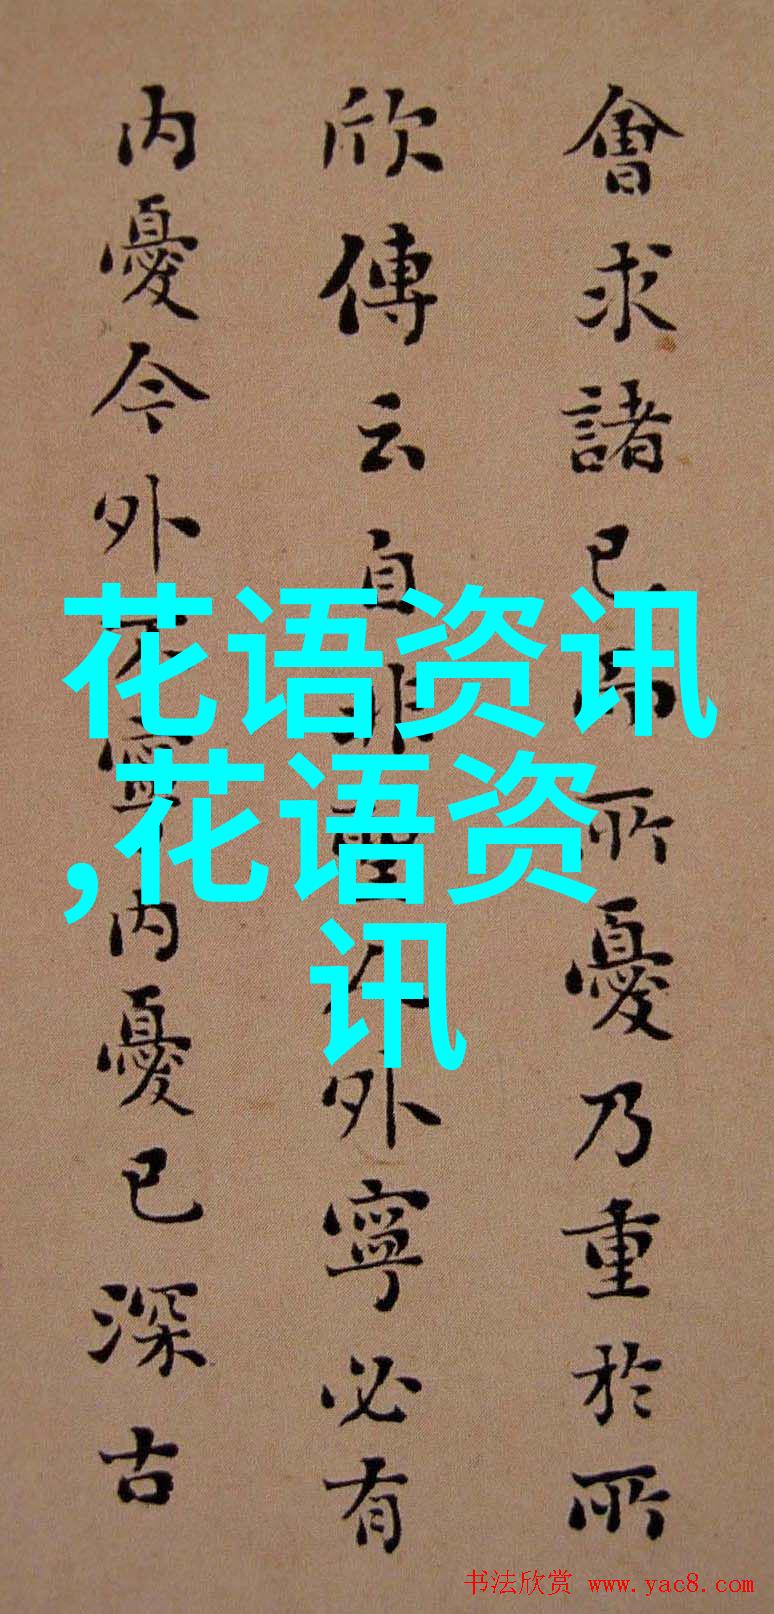 會求諸己而所憂乃重於所
欣傳云自非聖人外寧必有
内憂今外不寧内憂已深古
花语资讯
,花语资
讯
书法欣赏 www.yac8.com